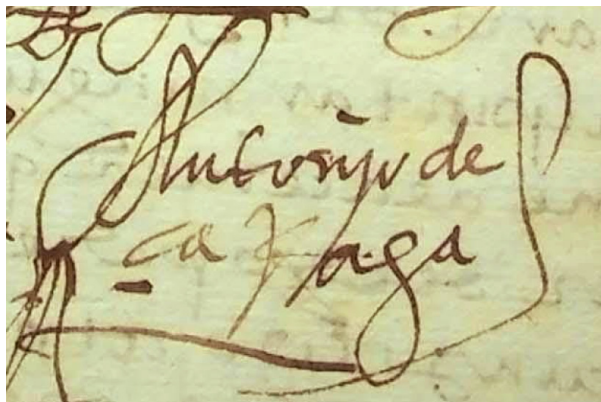 Antonyo de
çaRaga